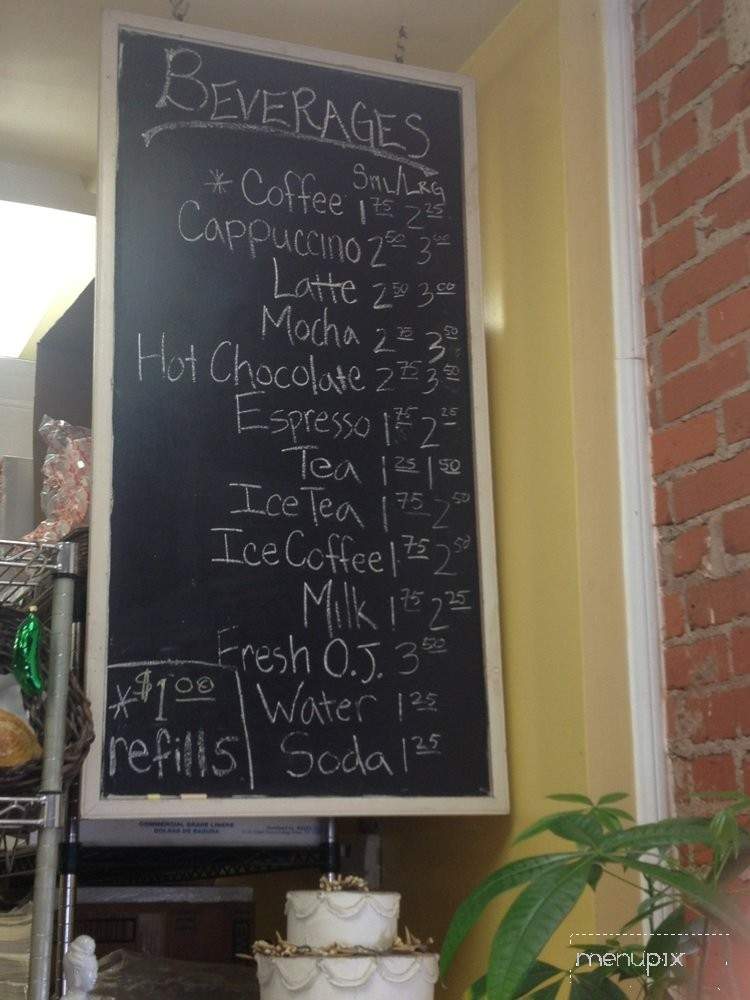 BEVERAGES
SML/LRG
* Coffee 1 75 2 25
Cappuccino 2 50 3 00
Latte 2 50 3 00
Mocha 2 75 3 50
Hot Chocolate 2 75 3 50
Espresso 1 75 2 25
Tea 1 25 1 50
Ice Tea 1 75 2 50
Ice Coffee 1 75 2 50
Milk 1 75 2 25
Fresh O.J. 3 50
Water 1 25
Soda 1 25
* $1 00
refills
COMMERCIAL GRADE LINERS
BOLSAS DE BASURA
menupix